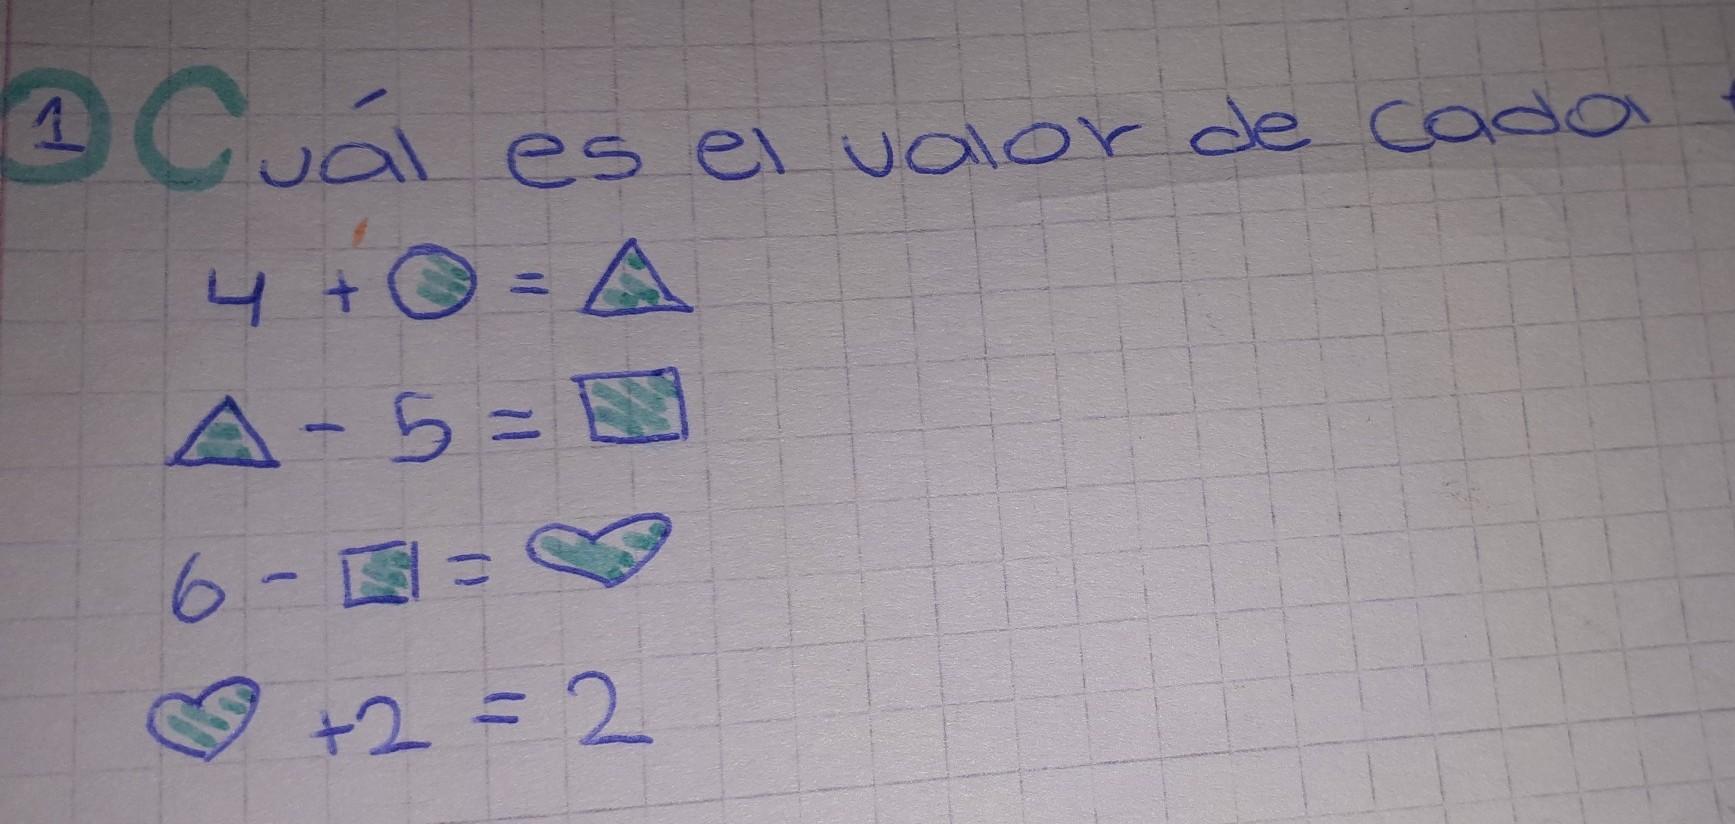 1 Cuál es el valor de cada
4 + ○ = △
△ - 5 = □
6 - □ = ♡
♡ +2 = 2